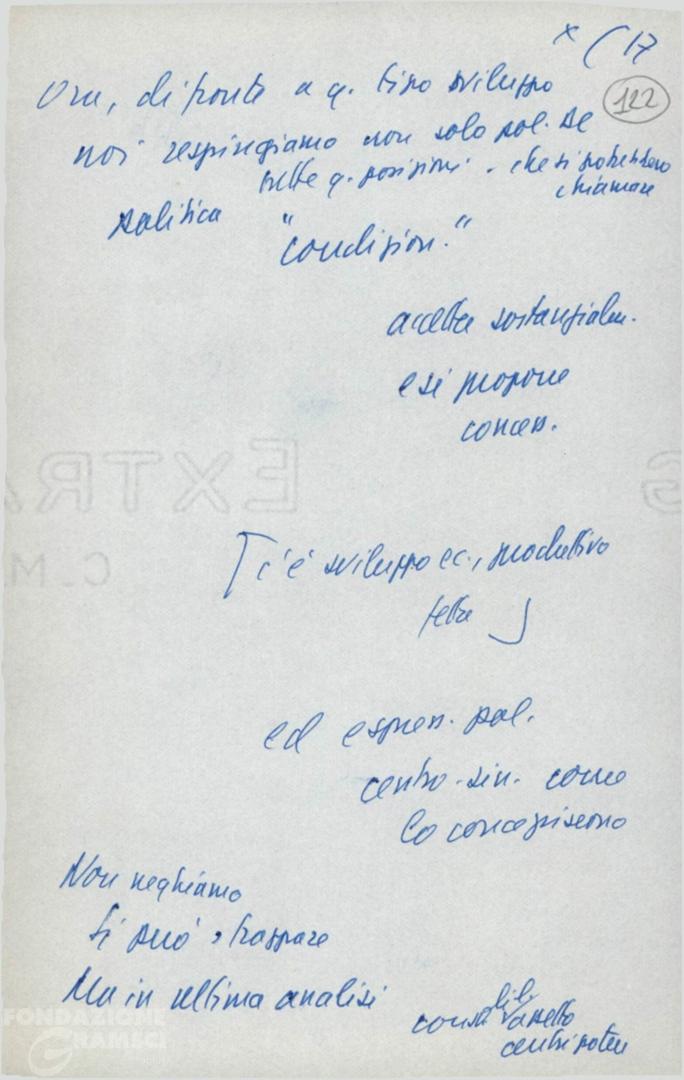 x ( 17
122
Ora, di fronte a q. tipo sviluppo
noi respingiamo non solo pol. de
tutte q. posizioni - che si potrebbero
chiamare
politica "condizion."
accetta sostanzialm.
e si propone
concen.
[ c'è sviluppo ec., produttivo
]
ed espress. pol.
centro-sin. come
lo concepiscono
Non neghiamo
si può strappare
Ma in ultima analisi
assetto
centri poteri
EXTRA
C M
FONDAZIONE
GRAMSCI